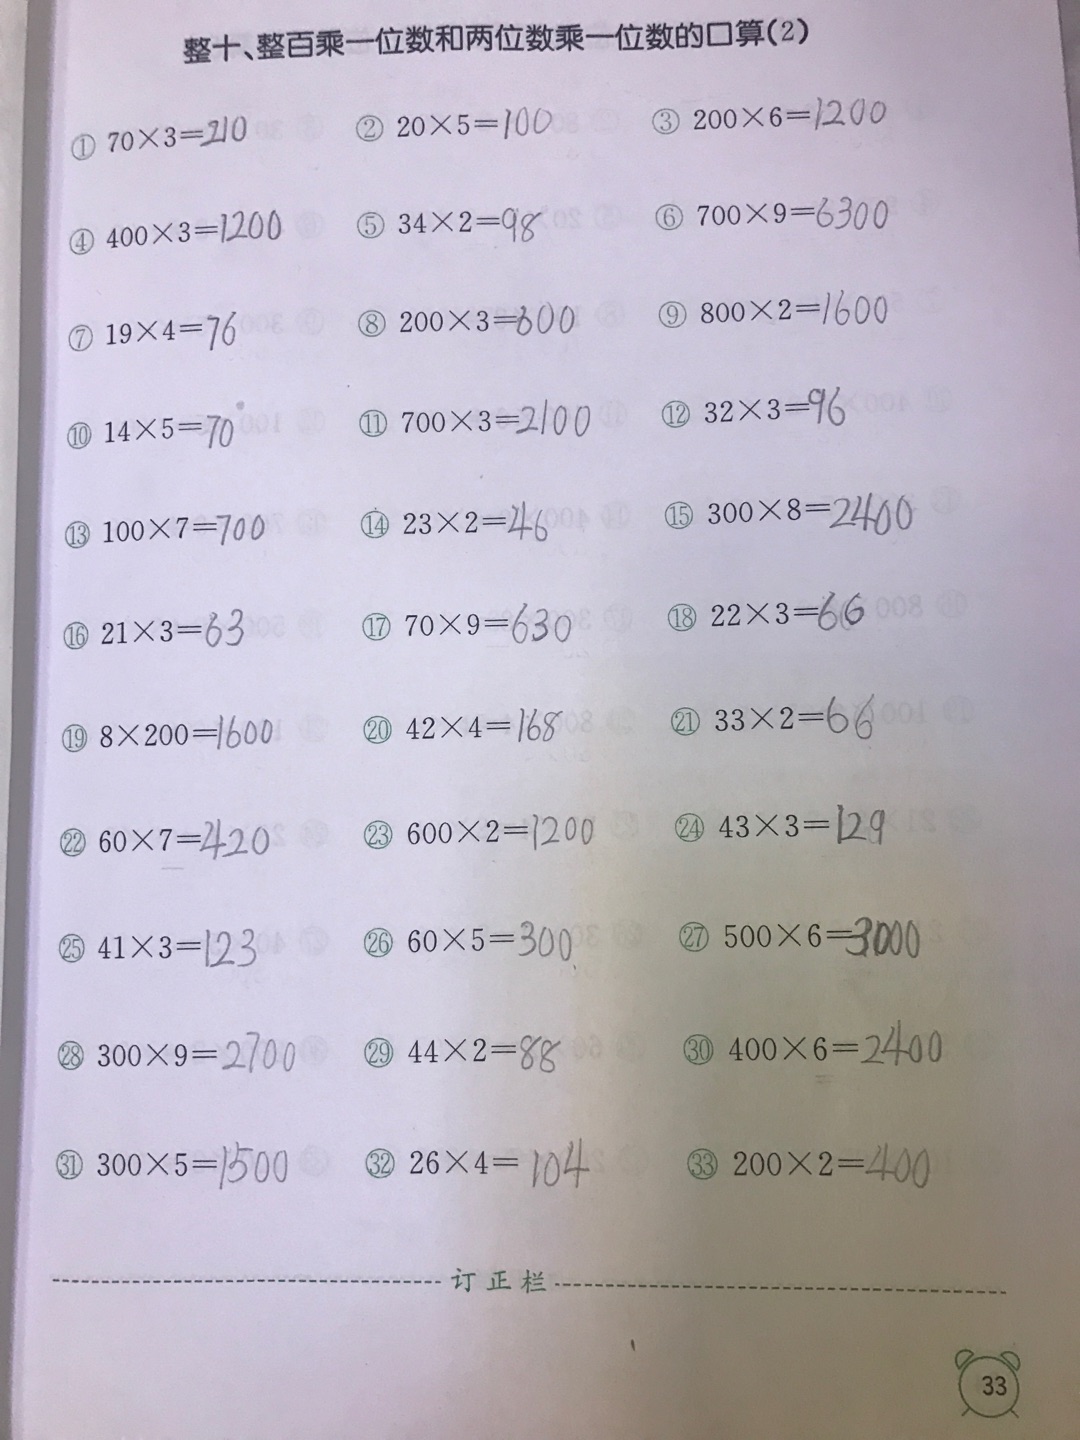 整十、整百乘一位数和两位数乘一位数的口算(2)
① 70×3=210 ② 20×5=100 ③ 200×6=1200
④ 400×3=1200 ⑤ 34×2=98 ⑥ 700×9=6300
⑦ 19×4=76 ⑧ 200×3=600 ⑨ 800×2=1600
⑩ 14×5=70 ⑪ 700×3=2100 ⑫ 32×3=96
⑬ 100×7=700 ⑭ 23×2=46 ⑮ 300×8=2400
⑯ 21×3=63 ⑰ 70×9=630 ⑱ 22×3=66
⑲ 8×200=1600 ⑳ 42×4=168 ㉑ 33×2=66
㉒ 60×7=420 ㉓ 600×2=1200 ㉔ 43×3=129
㉕ 41×3=123 ㉖ 60×5=300 ㉗ 500×6=3000
㉘ 300×9=2700 ㉙ 44×2=88 ㉚ 400×6=2400
㉛ 300×5=1500 ㉜ 26×4=104 ㉝ 200×2=400
订正栏
33